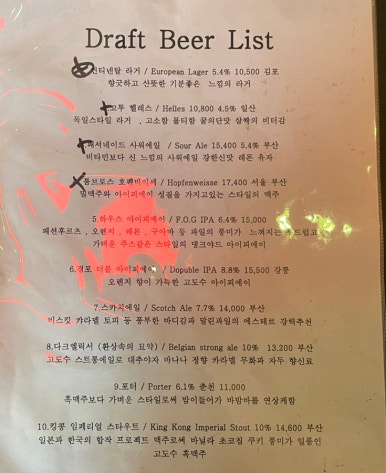 Draft Beer List
컨티넨탈 라거 / European Lager 5.4% 10,500 김포
향긋하고 산뜻한 기분좋은 느낌의 라거
헬레스 / Helles 10,800 4.5% 일산
독일스타일 라거 , 고소함 몰티함 꿀의단맛 살짝의 비터감
패셔네이드 사워에일 / Sour Ale 15,400 5.4% 부산
비타민보다 신 느낌의 사워에일 강한신맛 레몬 유자
홉브로스 호펜바이세 / Hopfenweisse 17,400 서울 부산
밀맥주와 아이피에이 성질을 가지고있는 스타일의 맥주
5.하우스 아이피에이 / F.O.G IPA 6.4% 15,000
패션후르츠 , 오렌지 , 레몬 , 구아바 등 과일의 풍미가 느껴지는 부드럽고
가벼운 주스같은 스타일의 탱크야드 아이피에이
6.경포 더블 아이피에이 / Dopuble IPA 8.8% 15,500 강릉
오렌지 향이 가득한 고도수 아이피에이
7.스카치에일 / Scotch Ale 7.7% 14,000 부산
비스킷 캬라멜 토피 등 풍부한 바디감과 말린과일의 에스테르 강력추천
8.다크엘릭서 (환상속의 묘약) / Belgian strong ale 10% 13.200 부산
고도수 스트롱에일로 대추야자 바나나 정향 카라멜 무화과 자두 향신료
9.포터 / Porter 6.1% 춘천 11,000
흑맥주보다 가벼운 스타일로써 밤이들어가 바밤바를 연상케함
10.킹콩 임페리얼 스타우트 / King Kong Imperial Stout 10% 14,600 부산
일본과 한국의 합작 프로젝트 맥주로써 바닐라 초코칩 쿠키 풍미가 일품인
고도수 흑맥주